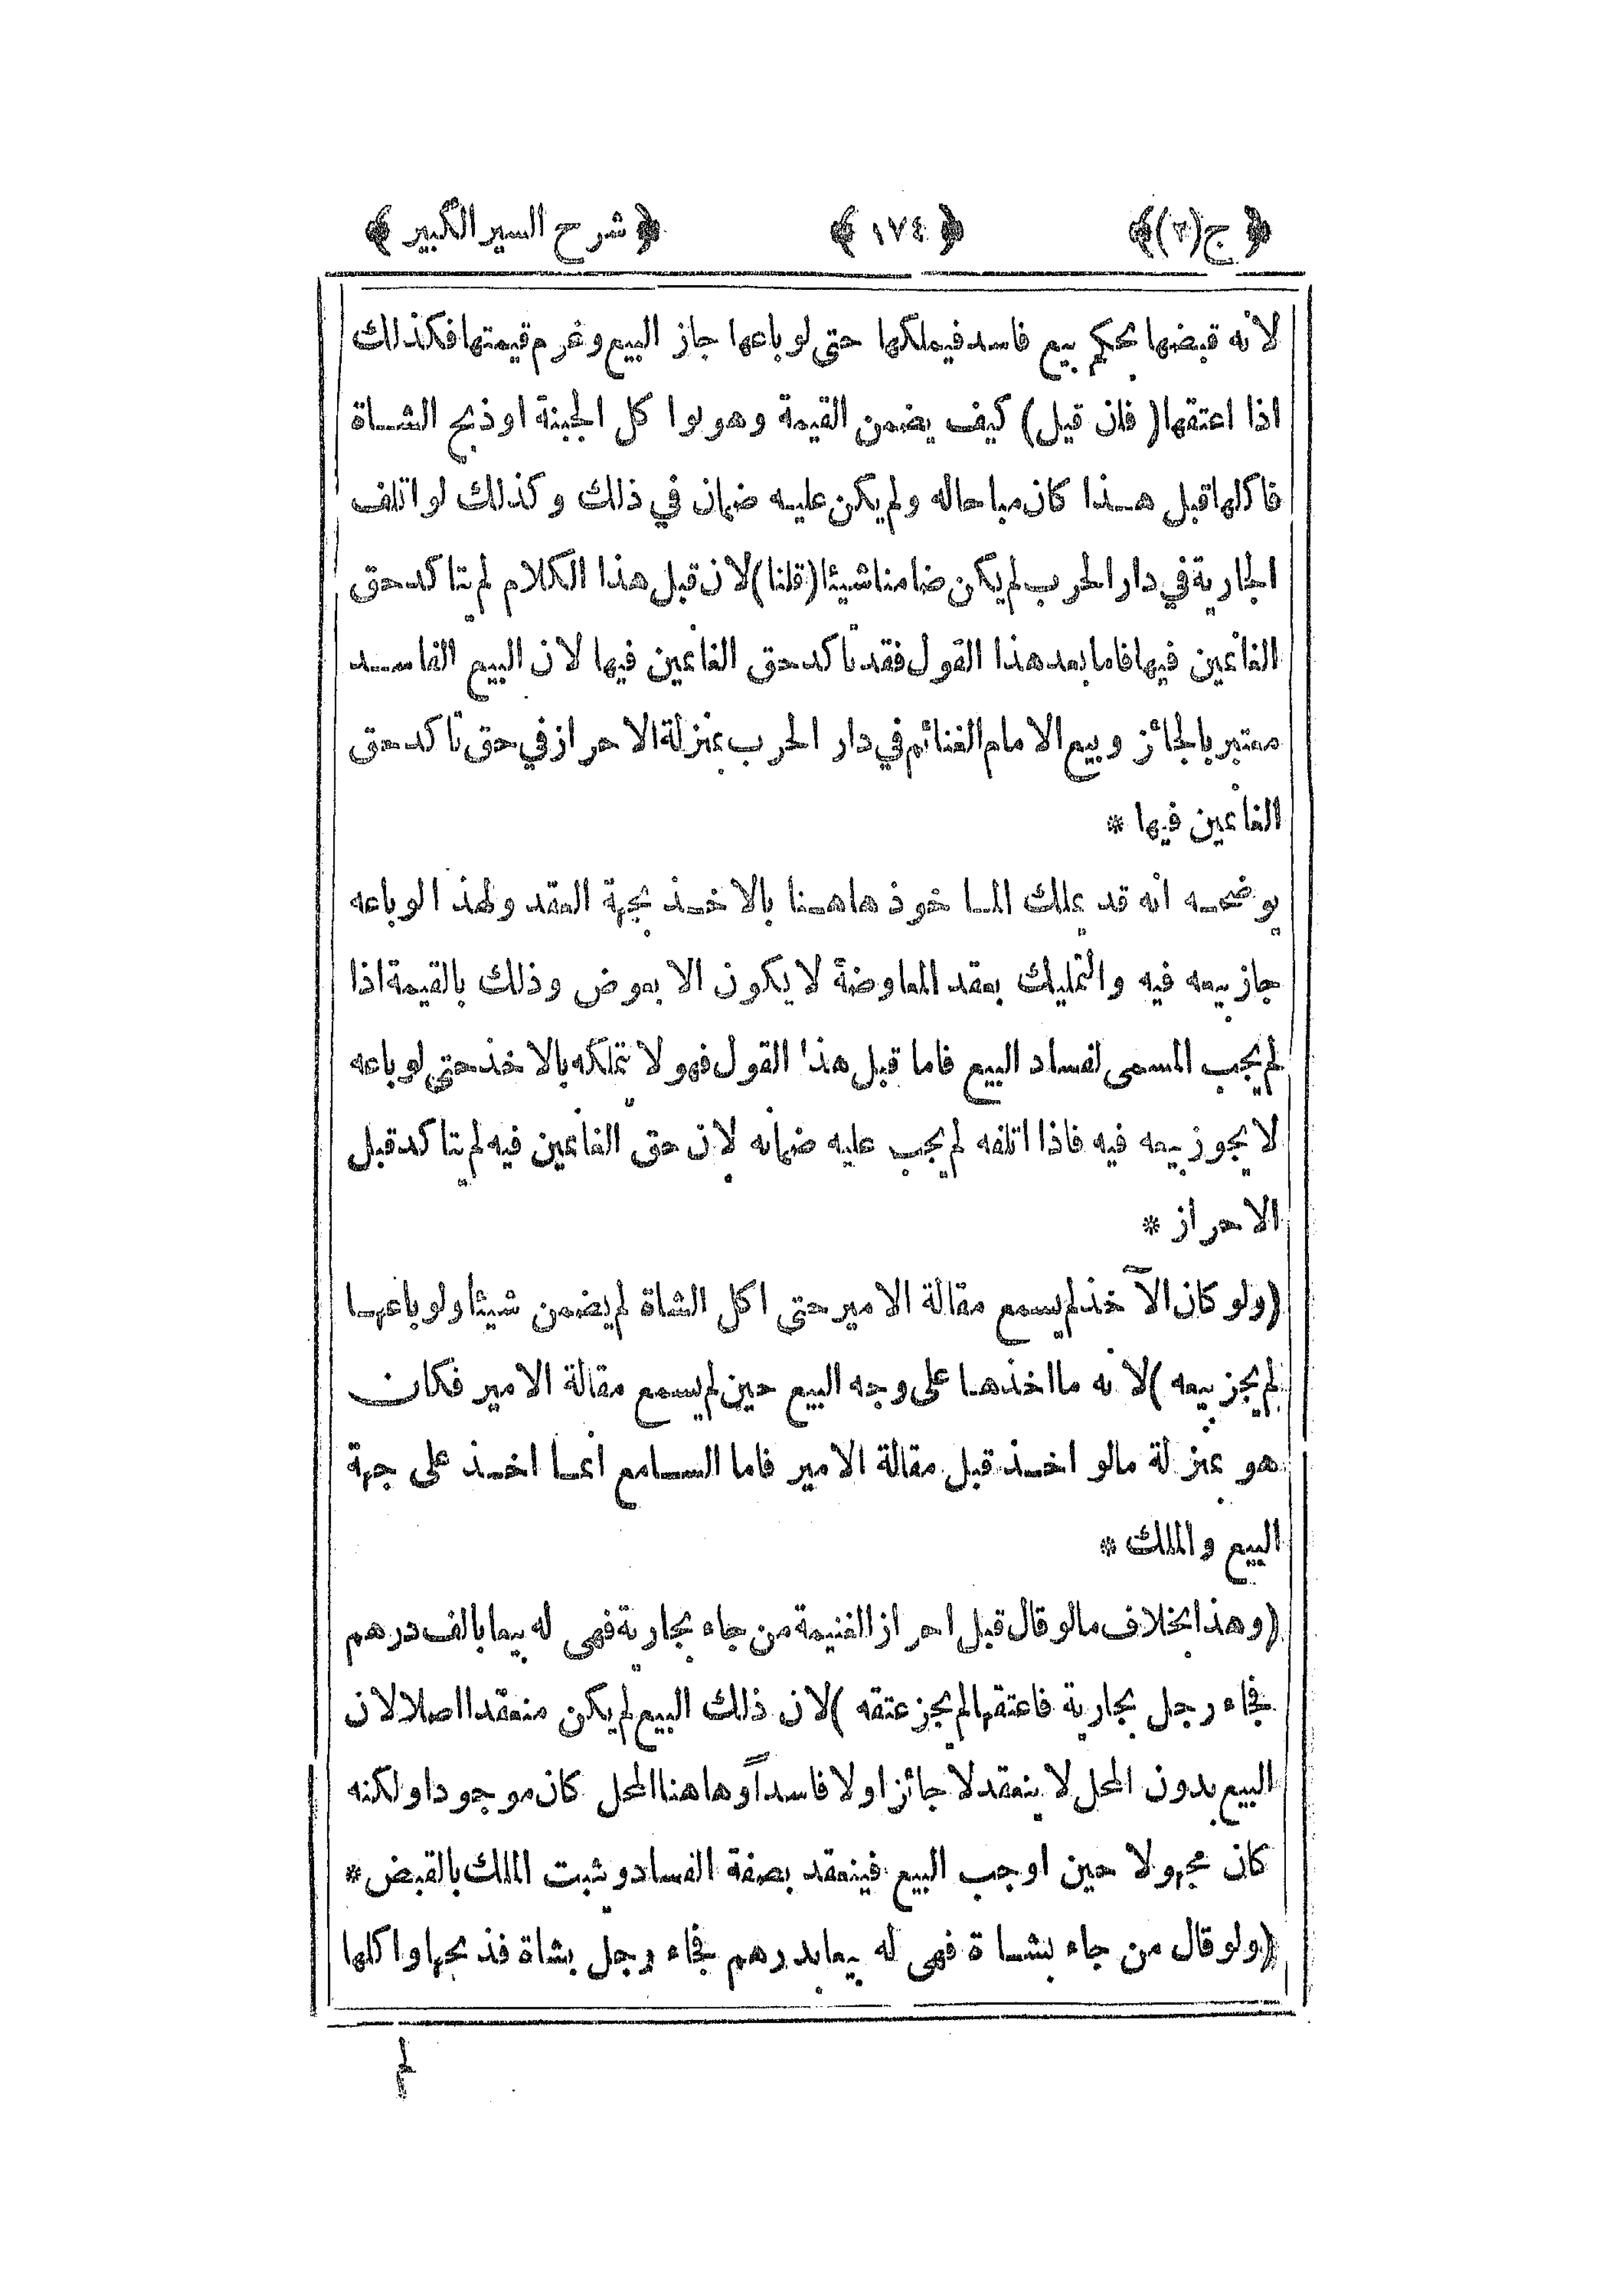 ﴿ج(٣)﴾ ﴿١٧٤﴾ ﴿شرح السير الكبير﴾
لانه قبضها بحكم بيع فاسد فيملكها حتى لو باعها جاز البيع وغرم قيمتها فكذلك
اذا اعتقها (فان قيل) كيف يضمن القيمة وهو لوا كل الجبنة او ذبح الشاة
فاكلها قبل هذا كان مباحاله ولم يكن عليه ضمان في ذلك وكذلك لو اتلف
الجارية في دار الحرب لم يكن ضامنا شيئا (قلنا) لان قبل هذا الكلام لم يتاكد حق
الغانمين فيها فاما بعد هذا القول فقد تاكد حق الغانمين فيها لان البيع الفاسد
معتبر بالجائز وبيع الامام الغنائم في دار الحرب بمنزلة الاحراز في حق تاكد حق
الغانمين فيها *
يوضحه انه قد يملك الماخوذ هاهنا بالاخذ بجهة العقد ولهذا لو باعه
جاز بيعه فيه والتمليك بعقد المعاوضة لا يكون الا بعوض وذلك بالقيمة اذا
لم يجب المسمى لفساد البيع فاما قبل هذا القول فهو لا يتملكه بالاخذ حتى لو باعه
لا يجوز بيعه فيه فاذا اتلفه لم يجب عليه ضمانه لان حق الغانمين فيه لم يتاكد قبل
الاحراز *
(ولو كان الآخذ لم يسمع مقالة الامير حتى اكل الشاة لم يضمن شيئا ولو باعها
لم يجز بيعه) لانه ما اخذها على وجه البيع حين لم يسمع مقالة الامير فكان
هو بمنزلة مالو اخذ قبل مقالة الامير فاما السامع انما اخذ على جهة
البيع والملك *
(وهذا بخلاف مالو قال قبل احراز الغنيمة من جاء بجارية فهى له بيعا بالف درهم
فجاء رجل بجارية فاعتقها لم يجز عتقه) لان ذلك البيع لم يكن منعقدا اصلا لان
البيع بدون المحل لا ينعقد لا جائزا ولا فاسداً وهاهنا المحل كان موجودا ولكنه
كان مجهولا حين اوجب البيع فينعقد بصفة الفساد ويثبت الملك بالقبض *
(ولو قال من جاء بشاة فهى له بيعا بدرهم فجاء رجل بشاة فذبحها واكلها
لم